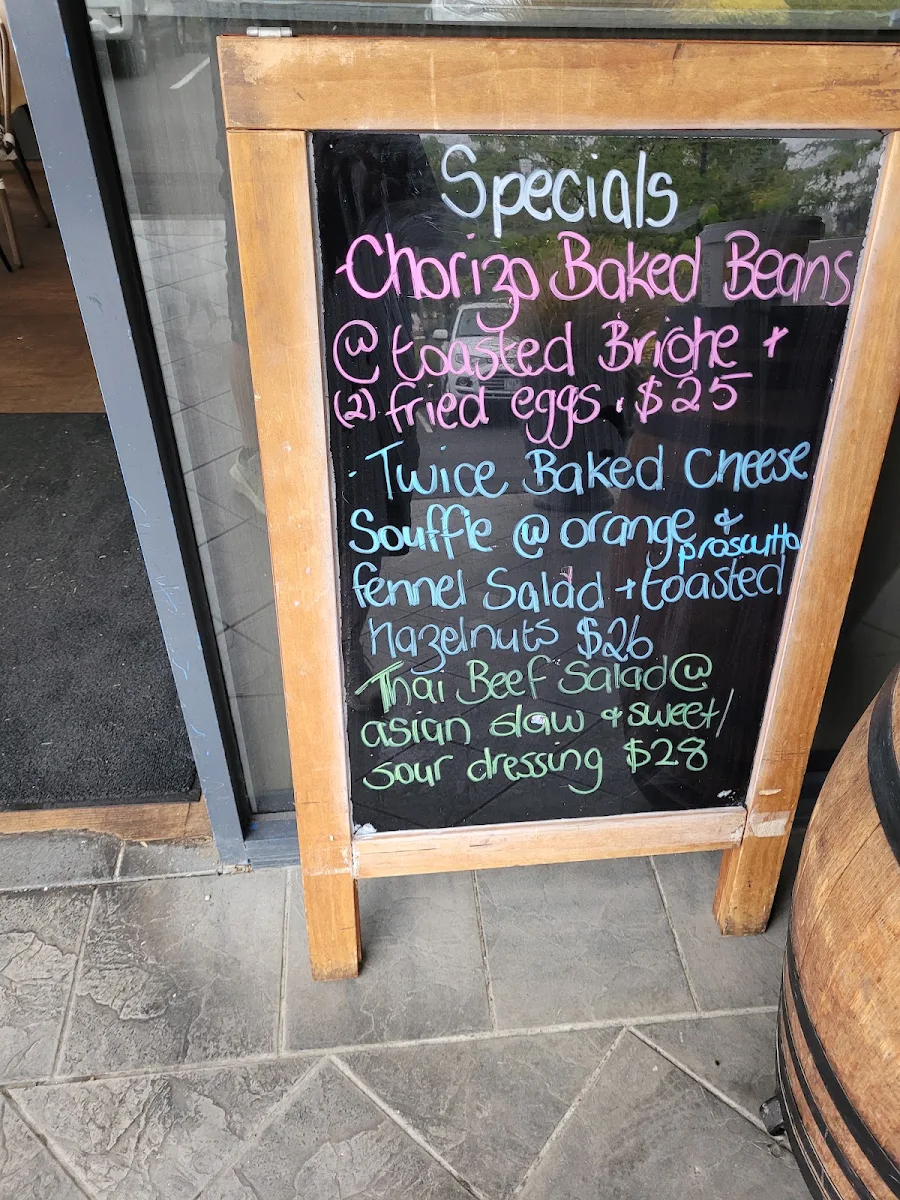 Specials
-Chorizo Baked Beans
@ toasted Brioche +
(2) fried eggs. $25
· Twice Baked Cheese
Souffle @ orange &
proscutto
fennel Salad + toasted
hazelnuts $26
Thai Beef Salad @
asian slaw & sweet/
sour dressing $28